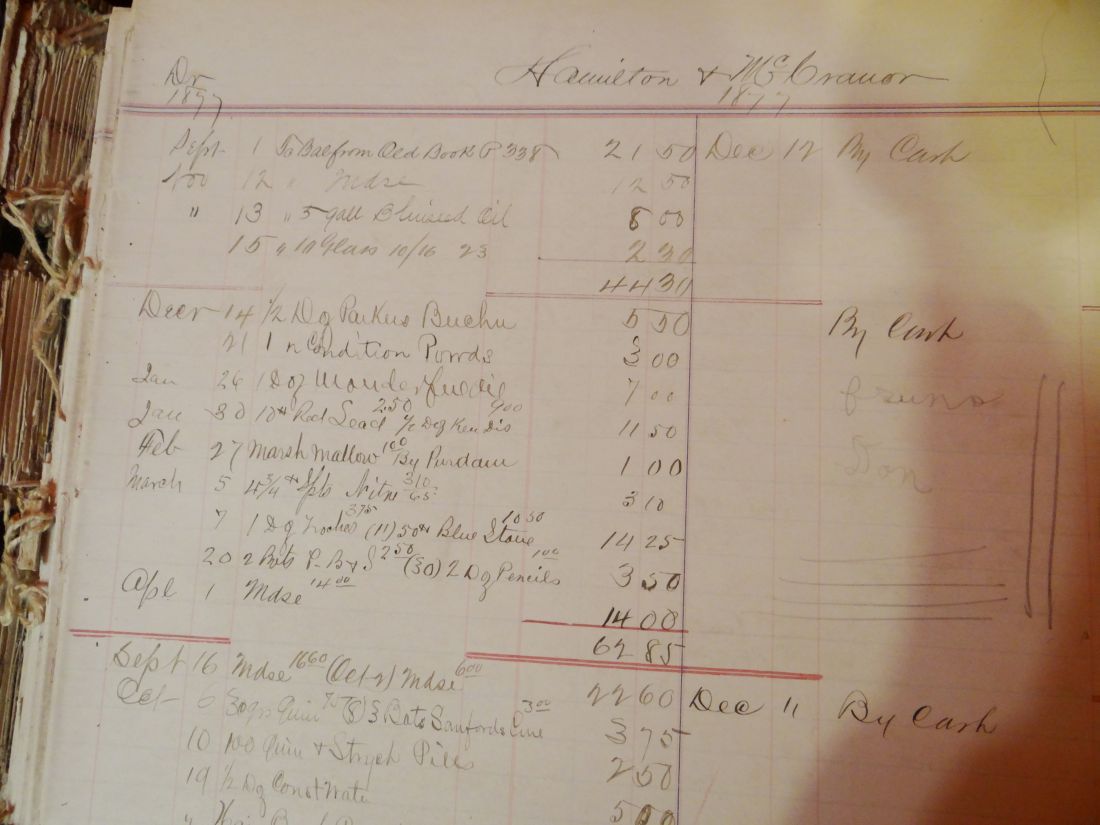 Dr Hamilton & McCranor
1877 1877
Sept 1 To Bal from Old Book P 338 21 50 Dec 12 By Cash
12 " Mdse 12 50
" 13 " 5 gall B Linseed Oil 8 00
15 " Glass 10/16 23 2 30
44 30
Decr 14 1/2 Dz Parkers Buchu 5 50 By Cash
21 1 " Condition Powds 3 00
Jan 26 1 Doz 7 00
Jan 30 10# Red Lead 2.50 1/2 Doz Ken Dis 9.00 11 50
Feb 27 Marsh Mallow 1 00 By Purdam 1 00
March 5 4 3/4 # Spts Nitre 3 10 3 10
7 1 Dz 3 75 (11) 50# Blue Stone 10 50 14 25
20 2 Bots P. B & S 2 50 (30) 2 Dz Pencils 1 00 3 50
Apl 1 Mdse 14 00 14 00
62 85
Sept 16 Mdse 16 60 (Oct 2) Mdse 6 00 22 60 Dec " By Cash
Oct 6 30 grs Quin 75 (8) 3 Bots Sanfords Cure 3 00 3 75
10 100 Quin & Strych Pills 2 50
19 1/2 Dz Const Water 5 00
"